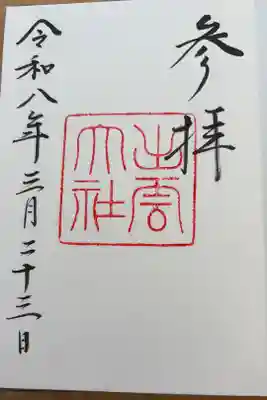 参拝
出雲
大社
令和八年三月二十三日